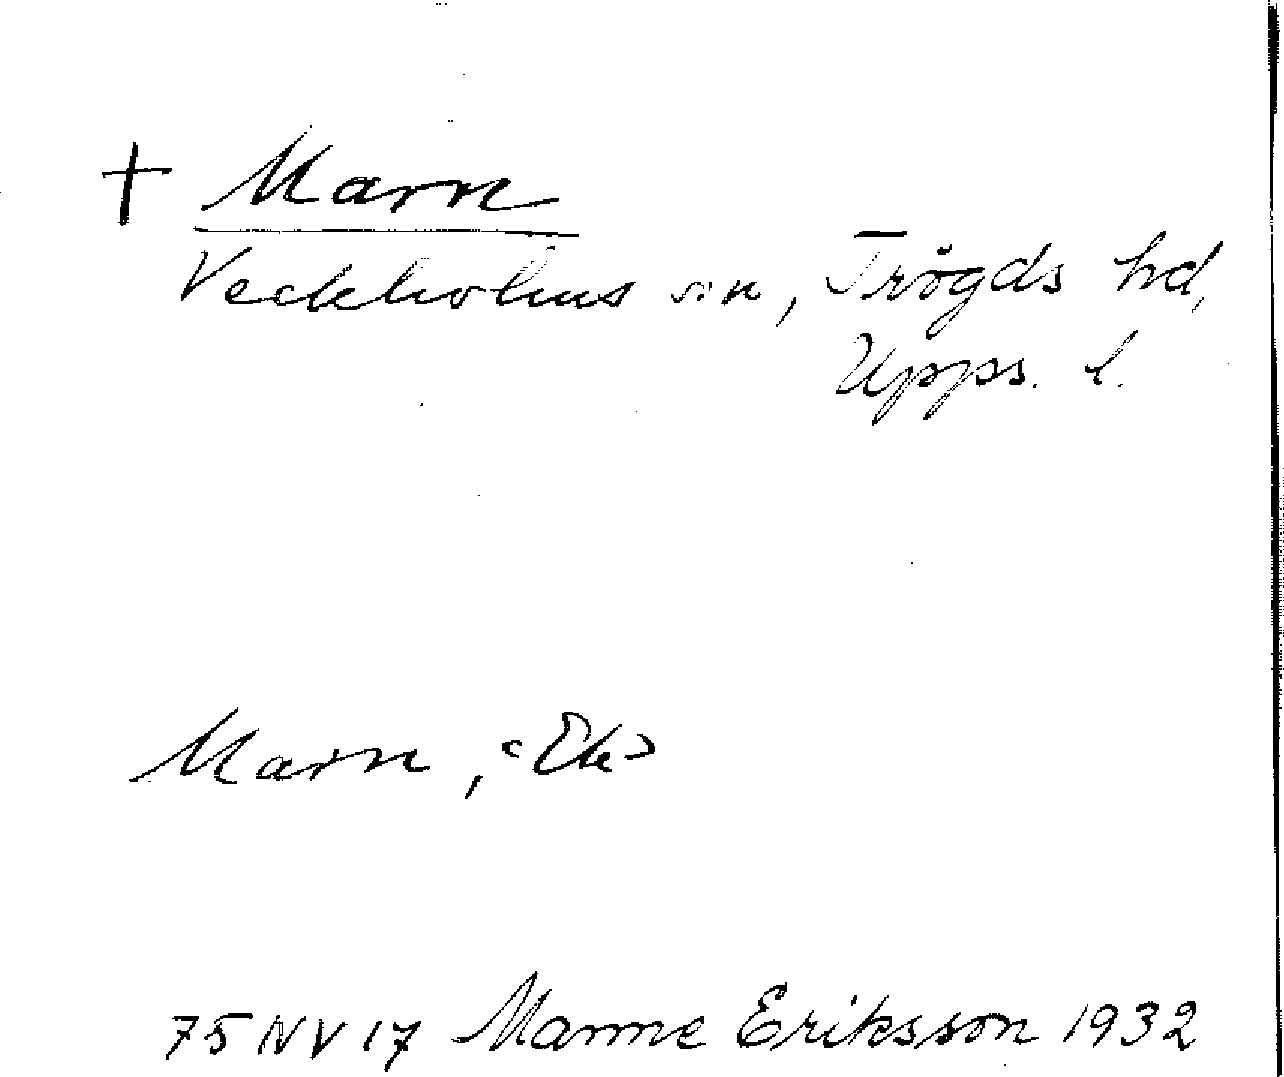 + Marn
Veckholms sn, Trögds hd,
Upps. l.
Marn, <Ek>
75 NV 17 Manne Eriksson 1932